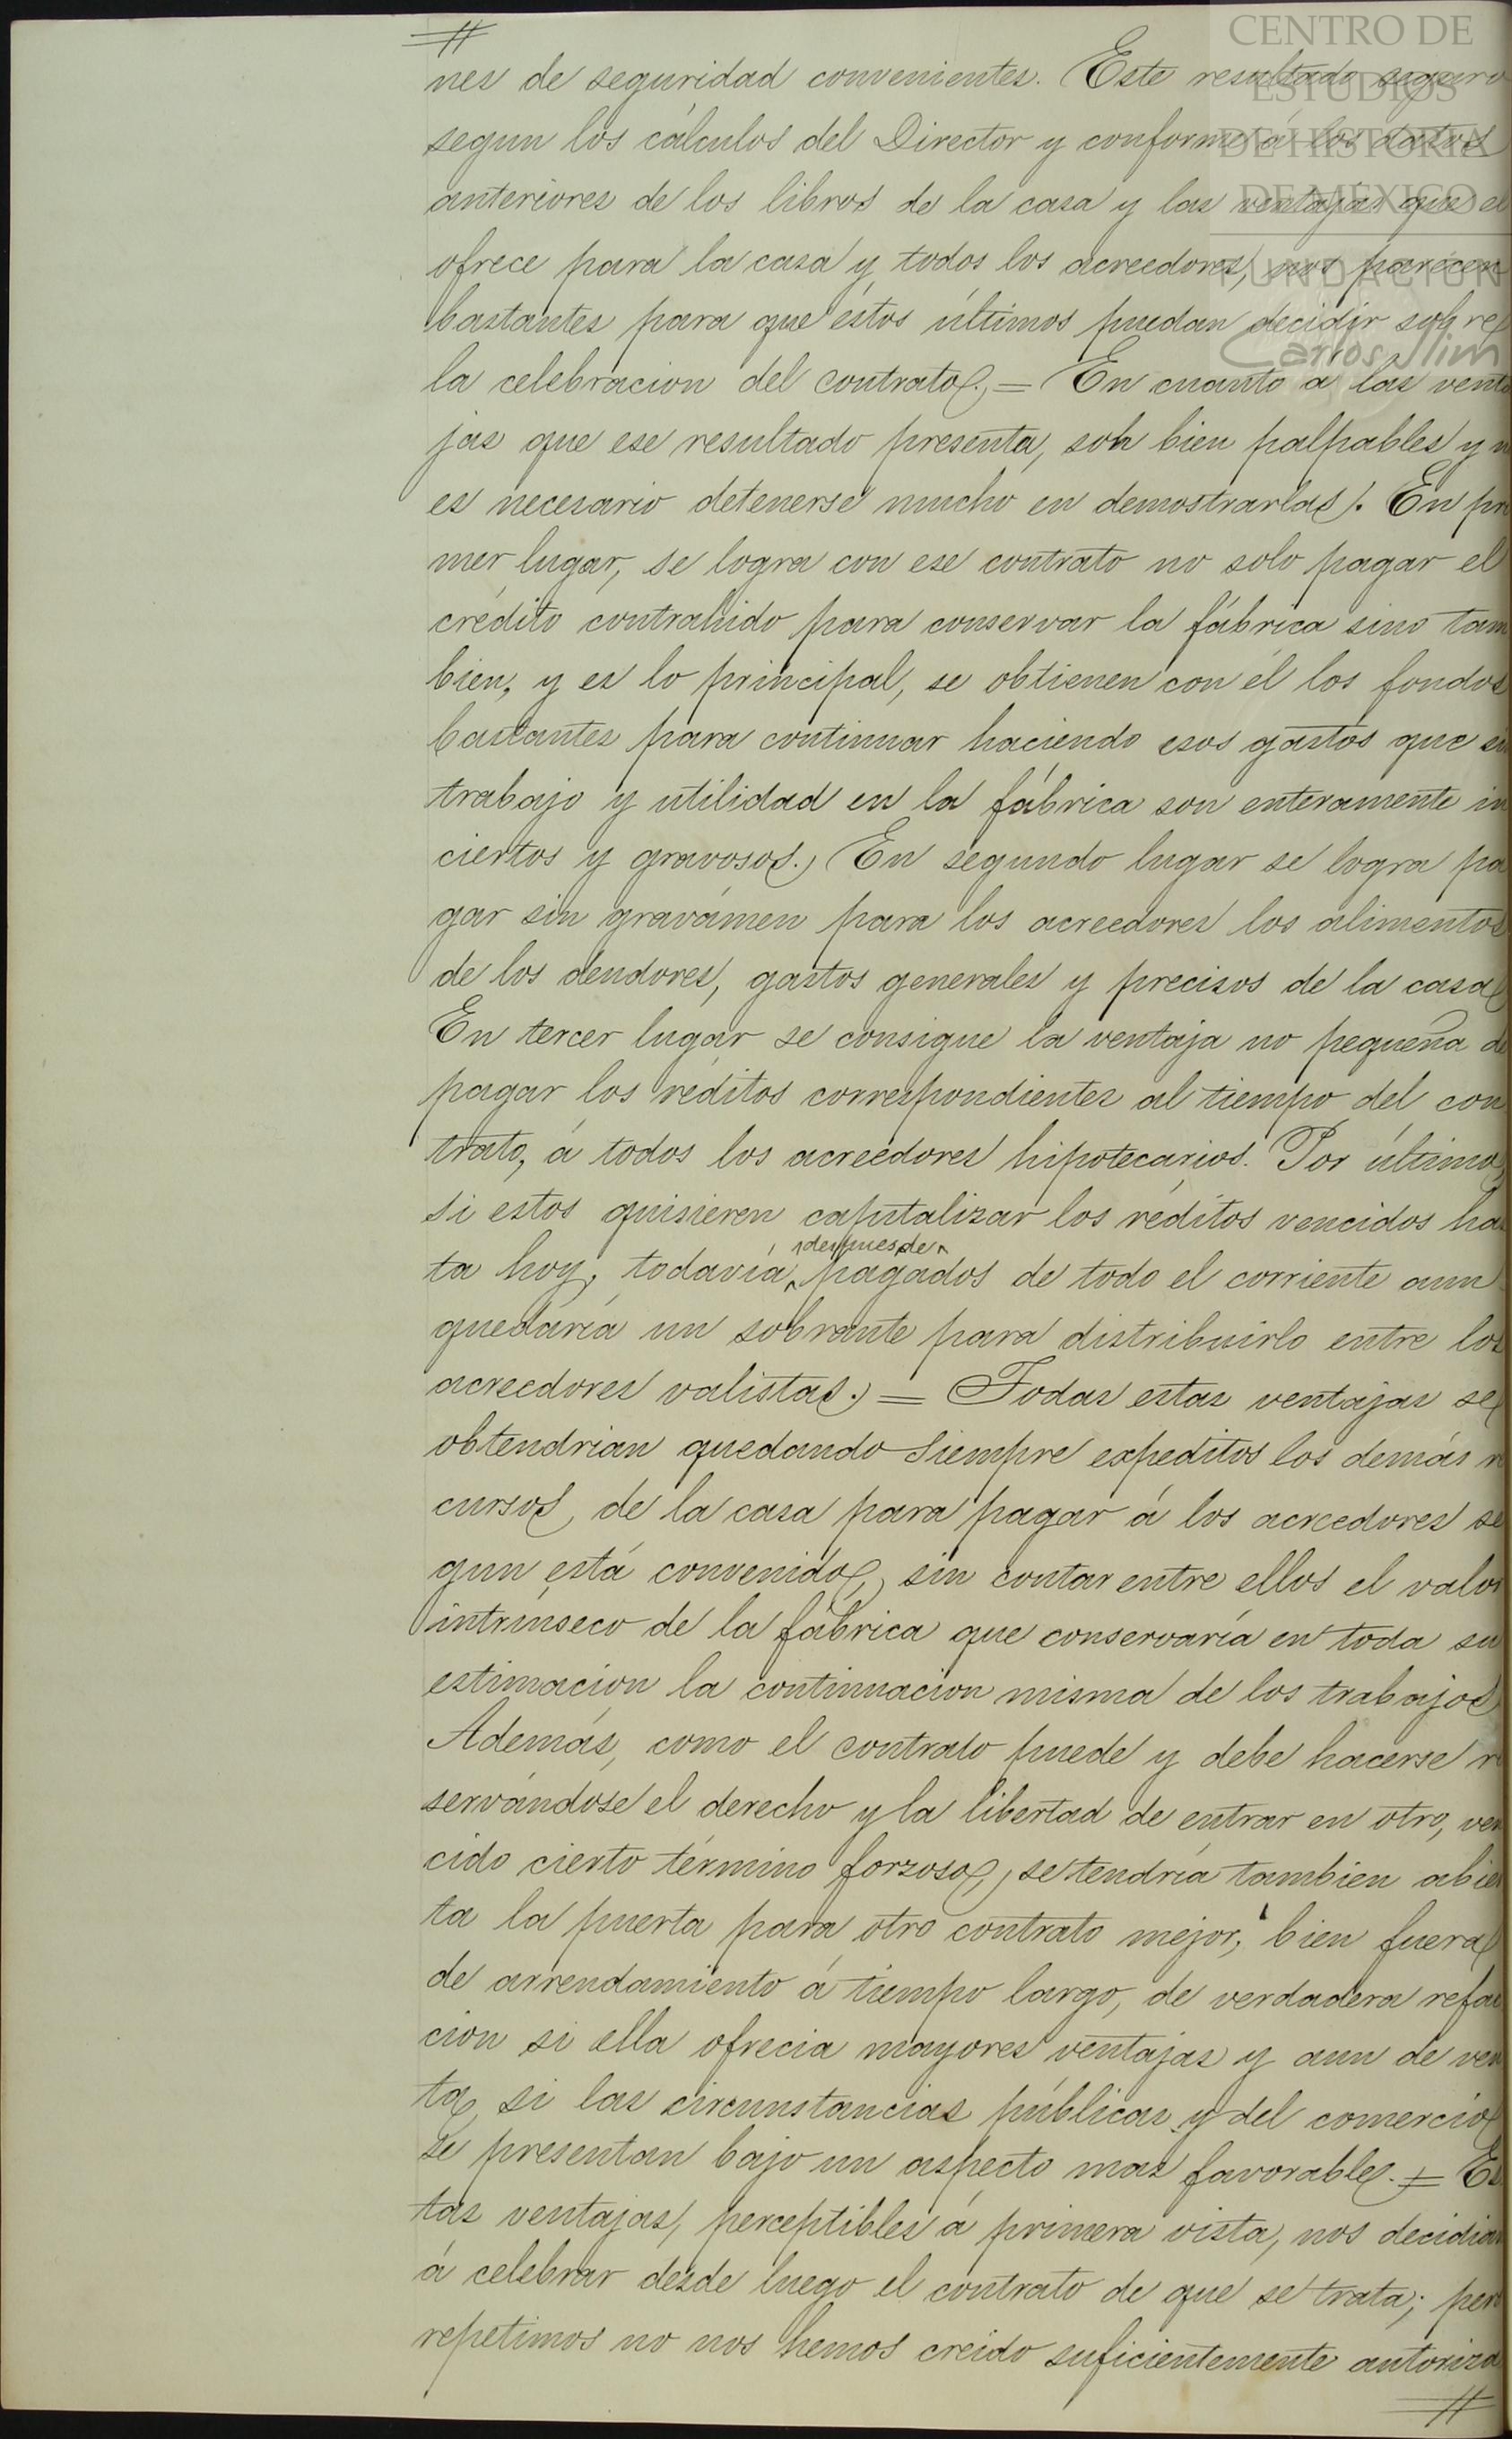 CENTRO DE
ESTUDIOS
DE HISTORIA
DE MÉXICO
FUNDACIÓN
Carlos Slim
nes de seguridad convenientes. Este resultado seguro
segun los cálculos del Director y conforme á los datos
anteriores de los libros de la casa y las ventajas que el
ofrece para la casa y todos los acreedores, nos parecen
bastantes para que éstos últimos puedan decidir sobre
la celebracion del contrato. = En cuanto a las venta
jas que ese resultado presenta, son bien palpables y n
es necesario detenerse mucho en demostrarlas. En pri
mer lugar, se logra con ese contrato no solo pagar el
crédito contrahido para conservar la fábrica sino tam
bien, y es lo principal, se obtienen con él los fondos
bastantes para continuar haciendo esos gastos que sin
trabajo y utilidad en la fábrica son enteramente in
ciertos y gravosos. En segundo lugar se logra pa
gar sin gravámen para los acreedores los alimentos
de los deudores, gastos generales y precisos de la casa
En tercer lugar se consigue la ventaja no pequeña de
pagar los réditos correspondientes al tiempo del con
trato, á todos los acreedores hipotecarios. Por último,
si estos quisieren capitalizar los réditos vencidos has
ta hoy, todavía despues de pagados de todo el corriente aun
quedaría un sobrante para distribuirlo entre los
acreedores valistas. = Todas estas ventajas se
obtendrian quedando siempre expeditos los demás re
cursos, de la casa para pagar á los acreedores se
gun está convenido, sin contar entre ellos el valor
intrínseco de la fábrica que conservaría en toda su
estimacion la continuacion misma de los trabajos
Además, como el contrato puede y debe hacerse re
servándose el derecho y la libertad de entrar en otro, ven
cido cierto término forzoso, se tendría tambien abier
ta la puerta para otro contrato mejor, bien fuera
de arrendamiento á tiempo largo, de verdadera refac
cion si ella ofrecia mayores ventajas y aun de ven
ta, si las circunstancias públicas y del comercio
se presentan bajo un aspecto mas favorable. = Es
tas ventajas, perceptibles á primera vista, nos decidian
á celebrar desde luego el contrato de que se trata; pero
repetimos no nos hemos creido suficientemente autoriza